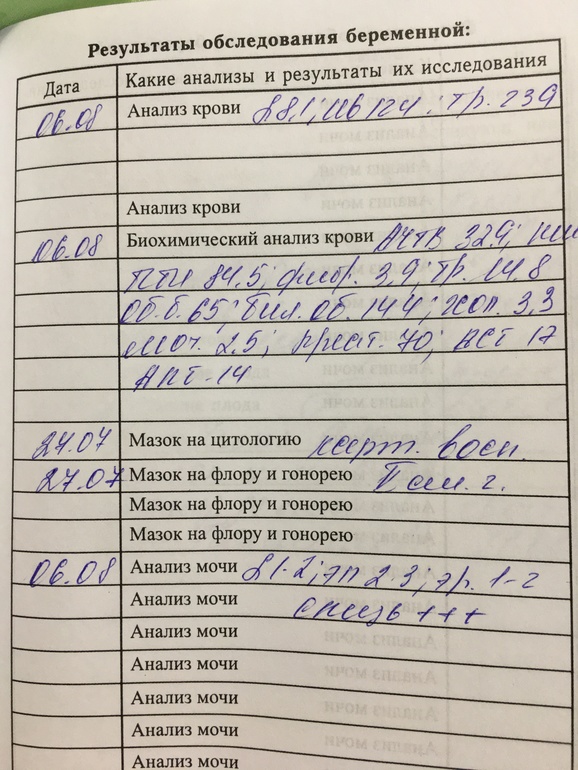 Результаты обследования беременной:
Дата Какие анализы и результаты их исследования
06.08 Анализ крови L 8,1; Hb 124; тр. 239
Анализ крови
06.08 Биохимический анализ крови АЧТВ 32,9;
ПТИ 84.5; фибр. 3,9; тр. 14.8
Об.б. 65; Бил. об. 14.4; Хол. 3,3
Моч. 2.5; Креат. 70; АСТ 17
АЛТ-14
27.07 Мазок на цитологию карт. восп.
27.07 Мазок на флору и гонорею
Мазок на флору и гонорею
Мазок на флору и гонорею
06.08 Анализ мочи L 1-2; эп 2-3; эр. 1-2
Анализ мочи слизь +++
Анализ мочи
Анализ мочи
Анализ мочи
Анализ мочи
Анализ мочи